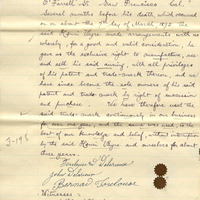 O'Farrell St. San Francisco Cal.
several months before his death, which occurred
on or about the 7th day of March 1892 the
said Regnin Ayres made arrangements with us
whereby, for a good and valid consideration, he
gave us the exclusive right to manufacture, use
and sell his said , with all privileges
of his patent and trade-mark thereon, and we
have since become sole owners of his said
patent and trade-mark by right of succession
and purchase. We have therefore used the
said trade-mark continuously in our business
for
best of our knowledge and belief, without interruption
by the said Regnin Ayres and ourselves for about
three years.
John
Witnesses: